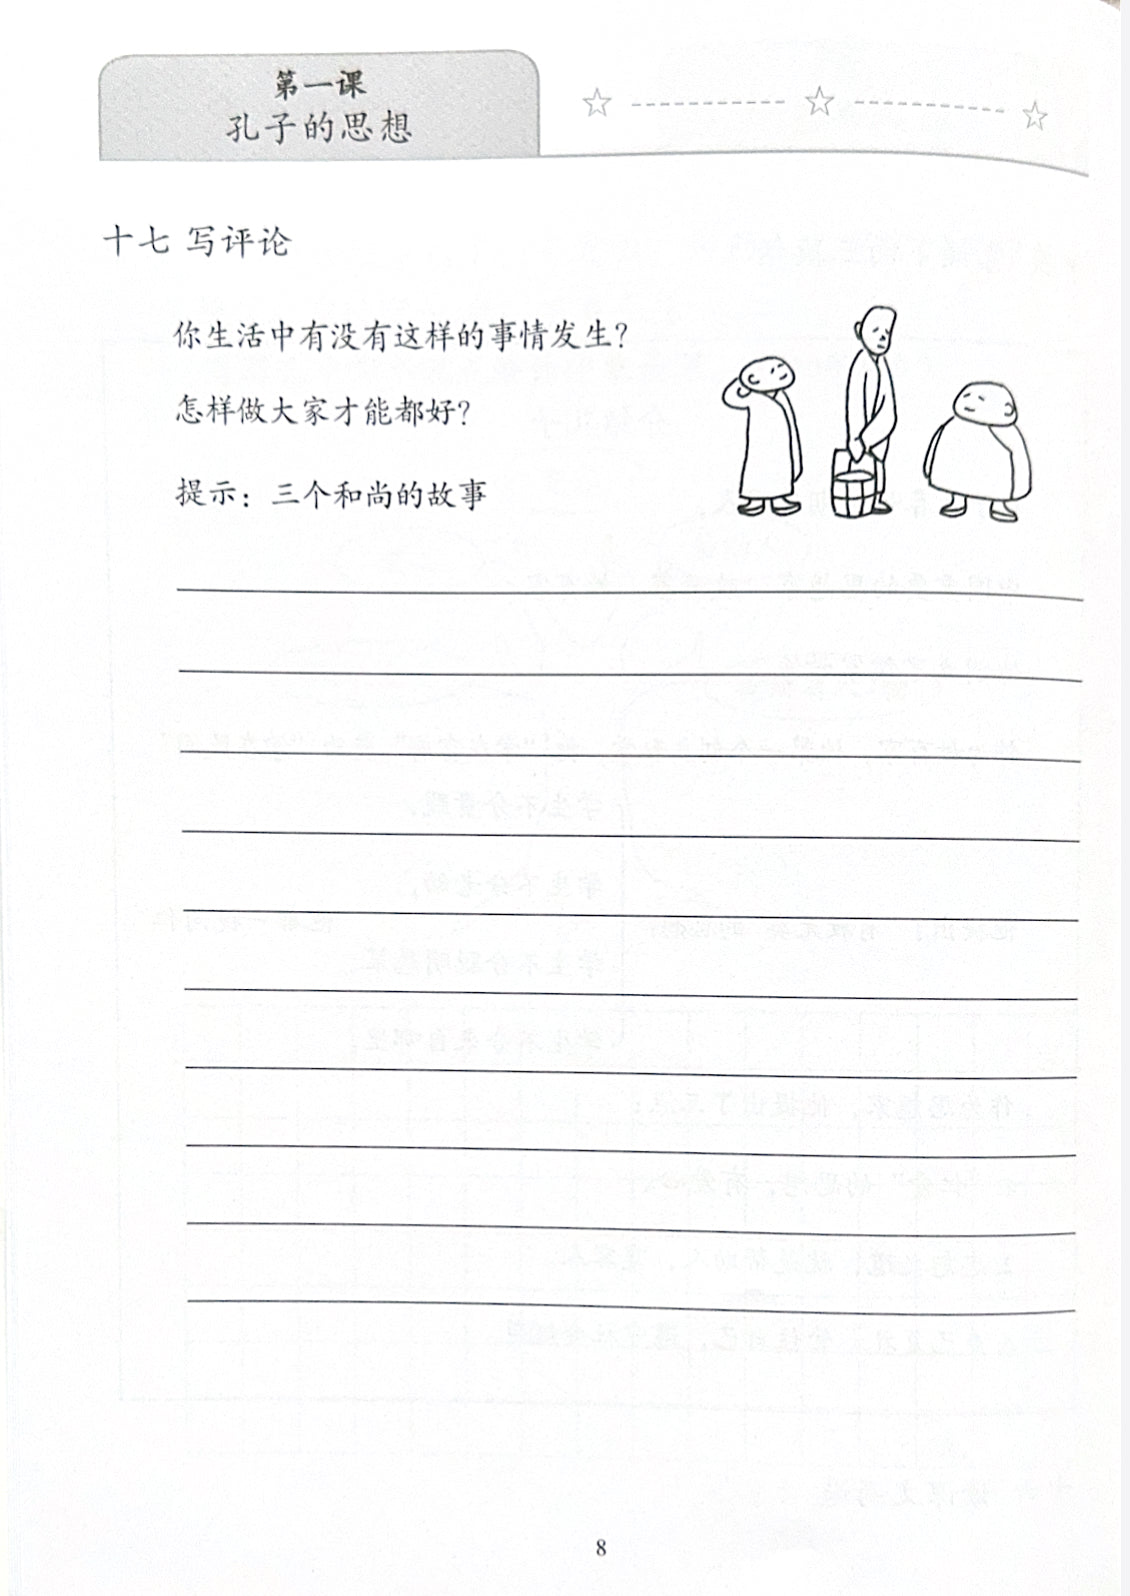 第一课
孔子的思想
十七 写评论
你生活中有没有这样的事情发生?
怎样做大家才能都好?
提示：三个和尚的故事
8